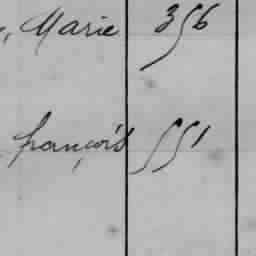 , Marie 356
françois 551